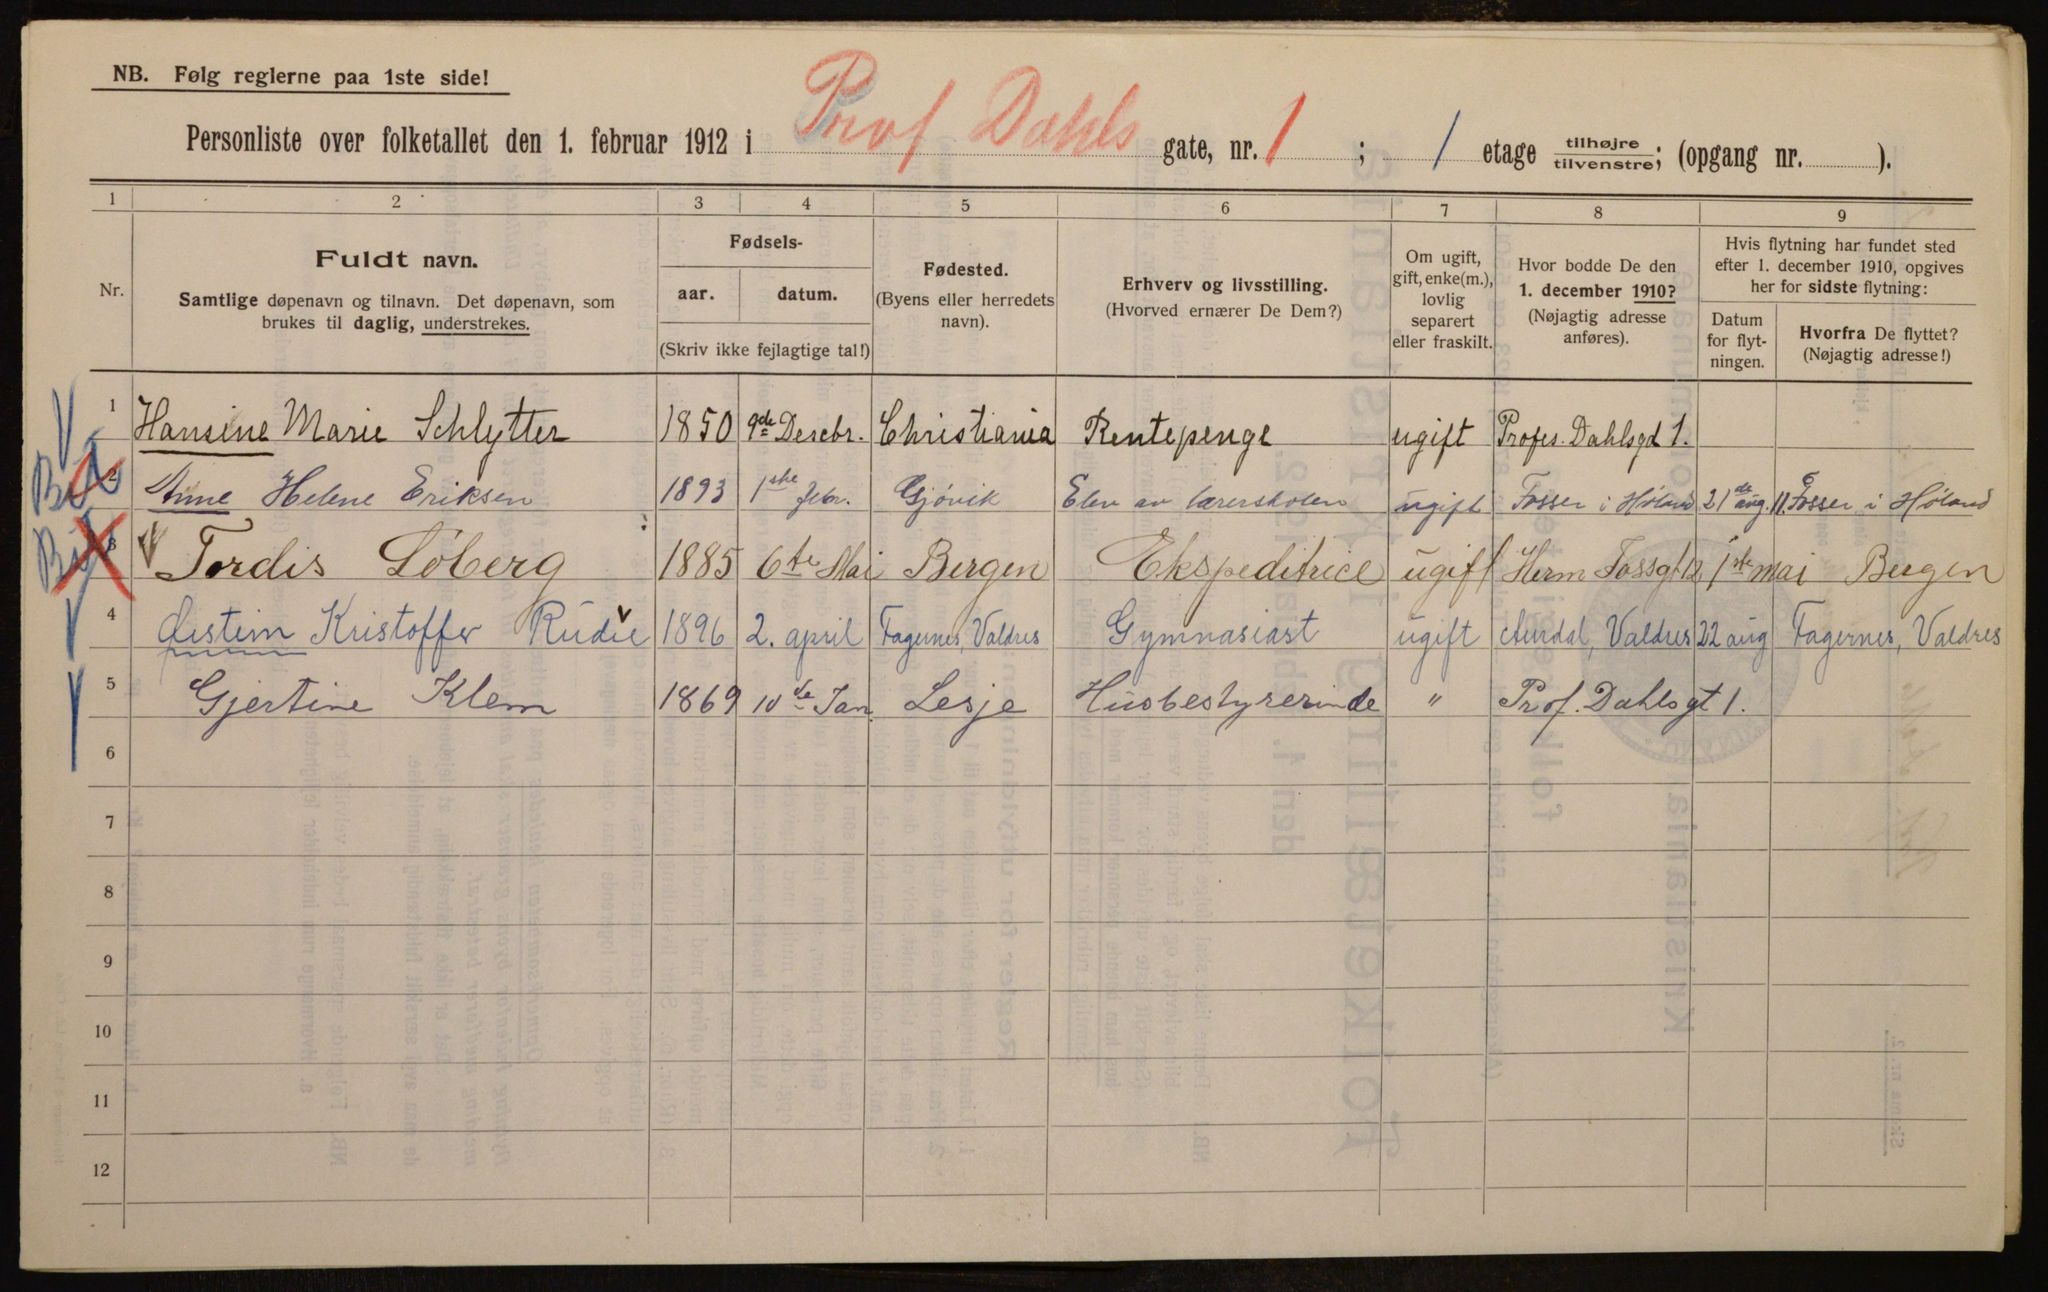 NB. Følg reglerne paa 1ste side!
Personliste over folketallet den 1. februar 1912 i Prof Dahls gate, nr. 1 ; 1 etage tilhøjre tilvenstre; (opgang nr. ).
1 2 3 4 5 6 7 8 9
Nr.
Fuldt navn.
Samtlige døpenavn og tilnavn. Det døpenavn, som
brukes til daglig, understrekes.
Fødsels-
aar. datum.
(Skriv ikke fejlagtige tal!)
Fødested.
(Byens eller herredets
navn).
Erhverv og livsstilling.
(Hvorved ernærer De Dem?)
Om ugift,
gift, enke(m.),
lovlig
separert
eller fraskilt.
Hvor bodde De den
1. december 1910?
(Nøjagtig adresse
anføres).
Hvis flytning har fundet sted
efter 1. december 1910, opgives
her for sidste flytning:
Datum
for flyt-
ningen.
Hvorfra De flyttet?
(Nøjagtig adresse!)
1 Hansine Marie Schlytter 1850 9de Desebr. Christiania Rentepenge ugift Profes. Dahlsgd 1.
2 Anne Helene Eriksen 1893 1ste febr. Gjövik Elev av lærerskolen ugift Fosser i Høland 21de aug. 11. Fosser i Høland
3 Tordis Löberg 1885 6te Mai Bergen Ekspeditrice ugift Herm Fossgt 12 1ste mai Bergen
4 Øistein Kristoffer Rudie 1896 2. april Fagernes, Valdres Gymnasiast ugift Aurdal, Valdres 22 aug Fagernes, Valdres
5 Gjertine Klem 1869 10de Jan. Lesje Husbestyrerinde " Prof. Dahlsgt 1.
6
7
8
9
10
11
12